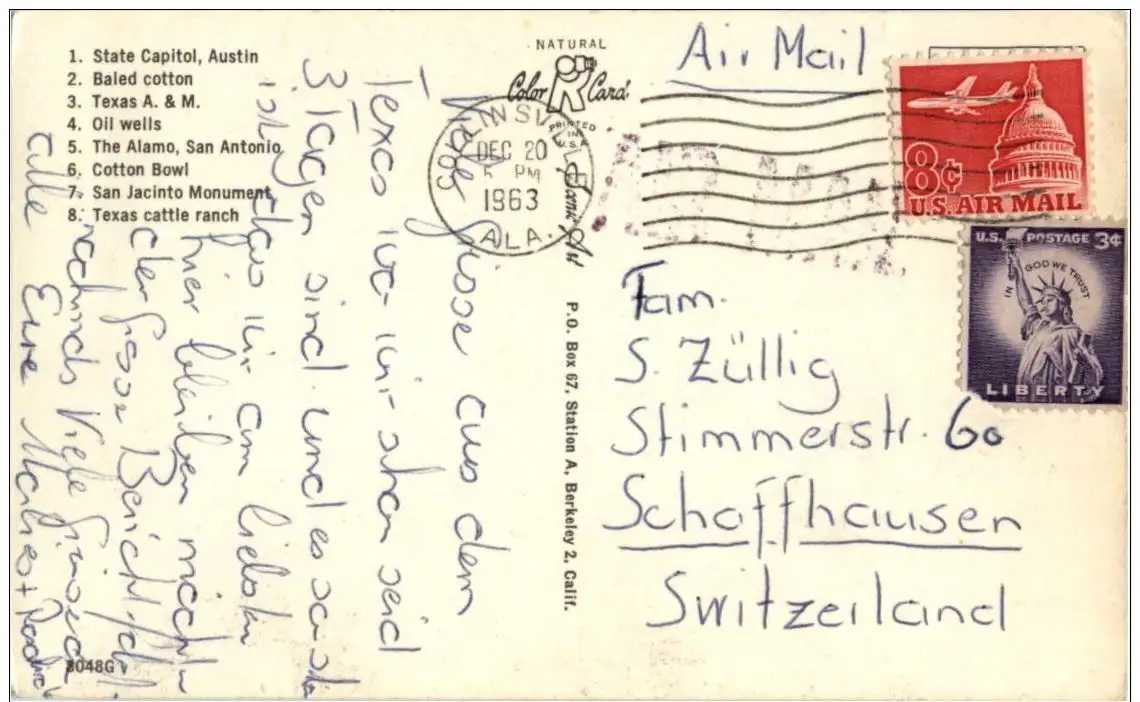 1. State Capitol, Austin
2. Baled cotton
3. Texas A. & M.
4. Oil wells
5. The Alamo, San Antonio
6. Cotton Bowl
7. San Jacinto Monument
8. Texas cattle ranch
NATURAL
Color Card
PRINTED
IN
U.S.A.
DEC 20
5 PM
1963
ALA.
Air Mail
8¢
U.S. AIR MAIL
U.S. POSTAGE 3¢
IN GOD WE TRUST
LIBERTY
Viele Grüsse aus dem
Texas wo wir schon seid
3 Tagen sind. Und es so
ist das wir am liebsten
hier bleiben möchten
der grosse Bericht
Viele Grüsse
alle Eure
Fam.
S. Züllig
Stimmerstr. 60
Schaffhausen
Switzerland
P.O. Box 67, Station A, Berkeley 2, Calif.
S048G